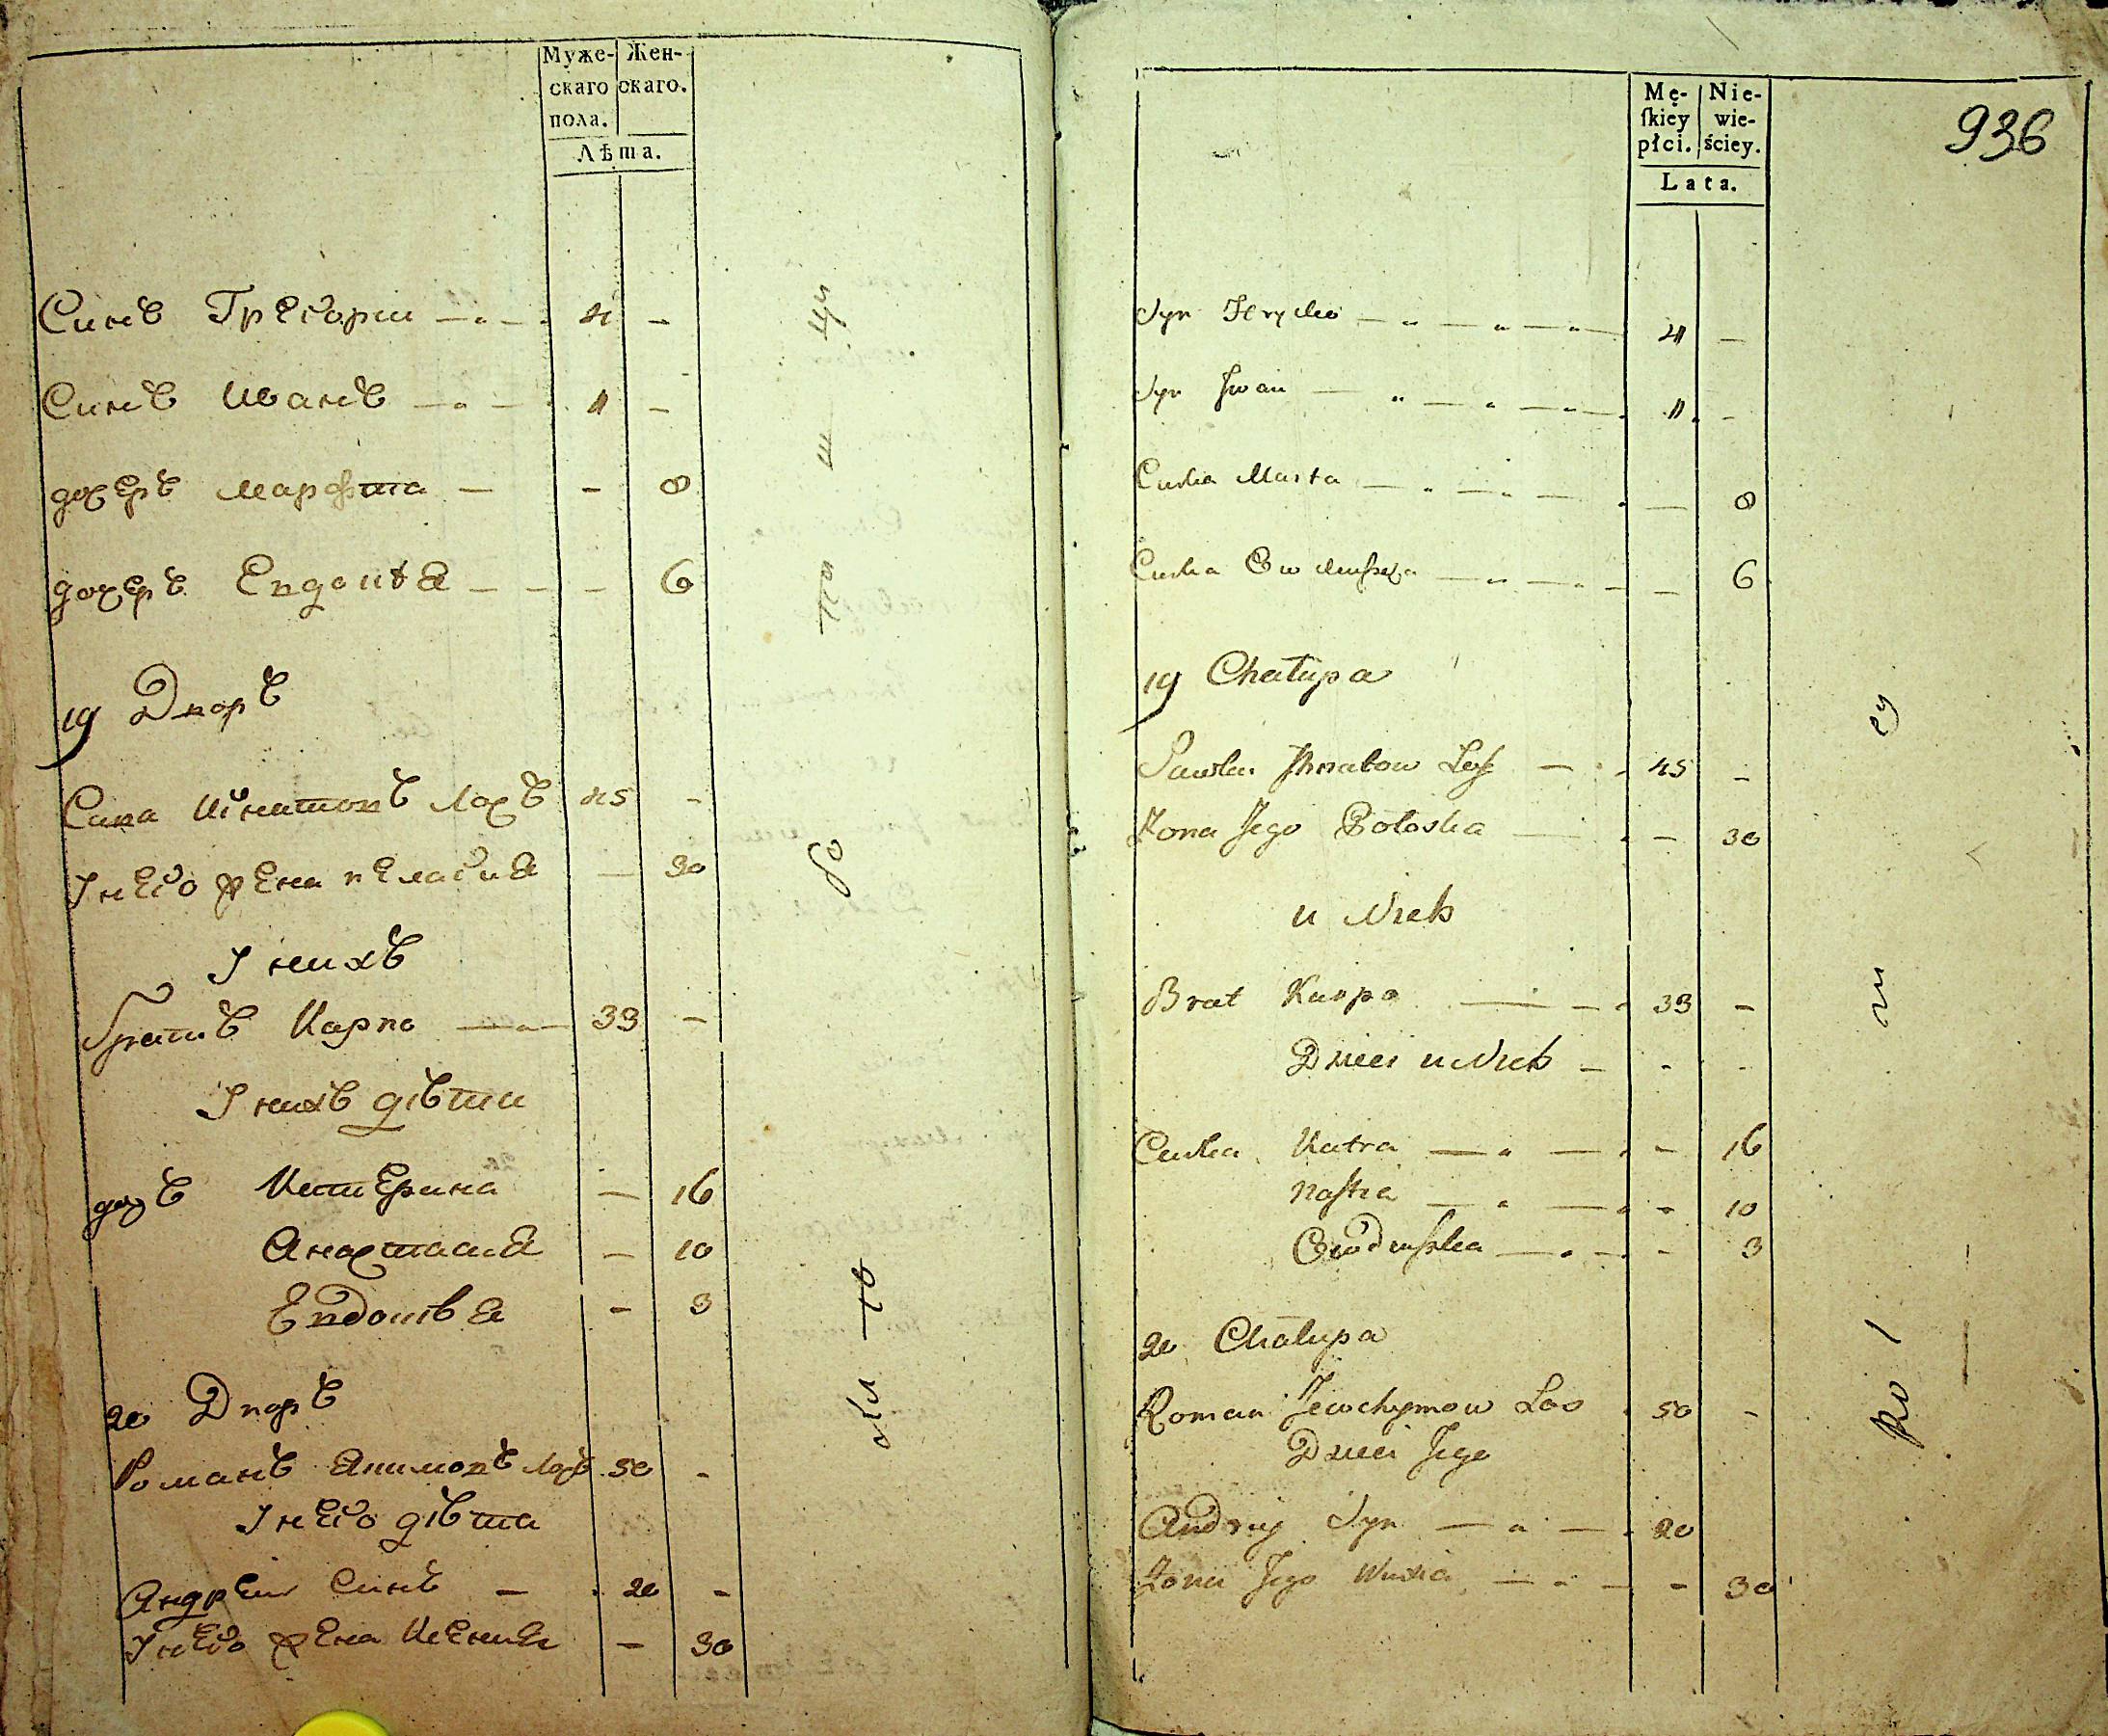 Муже-
скаго
пола.
Жен-
скаго.
Лѣта.
Синъ Григории — 4 —
Синъ Иванъ — 1 —
дочеръ Марфта — — 8
дочеръ Евдоція — — 6
19 Дворъ
Сава Игнатовъ Лосъ 45 —
У него жена Пелагия — 30
У нихъ
братъ Карпо — 33 —
У нихъ дѣти
дочъ Катерина — 16
Анастасия — 10
Евдокія — 3
20 Дворъ
Романъ Якимовъ Лосъ 50 —
У него дѣти
Андреи Синъ — 20 —
У него жена Ксения — 30
Mę-
ſkiey
płci.
Nie-
wie-
ściey.
Lata.
936
Syn Hryćko — 4 —
Syn Jwan — 1 —
Curka Marta — — 8
Curka — — 6
19 Chałupa
Sawka Jhnatow Loś — 45 —
Żona Jego Połoska — — 30
u Nich
Brat Karpo — 33 —
Dzieci u Nich — - -
Curka Katra — — 16
Naſtia — — 10
Owdiuſzka — — 3
20 Chałupa
Roman Jewchymow Los 50 —
Dzieci Jego
Andrzej Syn — 20
Żona Jego — — 30